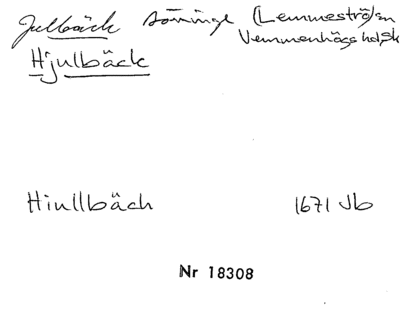 Julbäck Sönninge (Lemmeströ) sn
Vemmenhögs hd, Sk
Hjulbäck
Hiullbäch 1671 Jb
Nr 18308